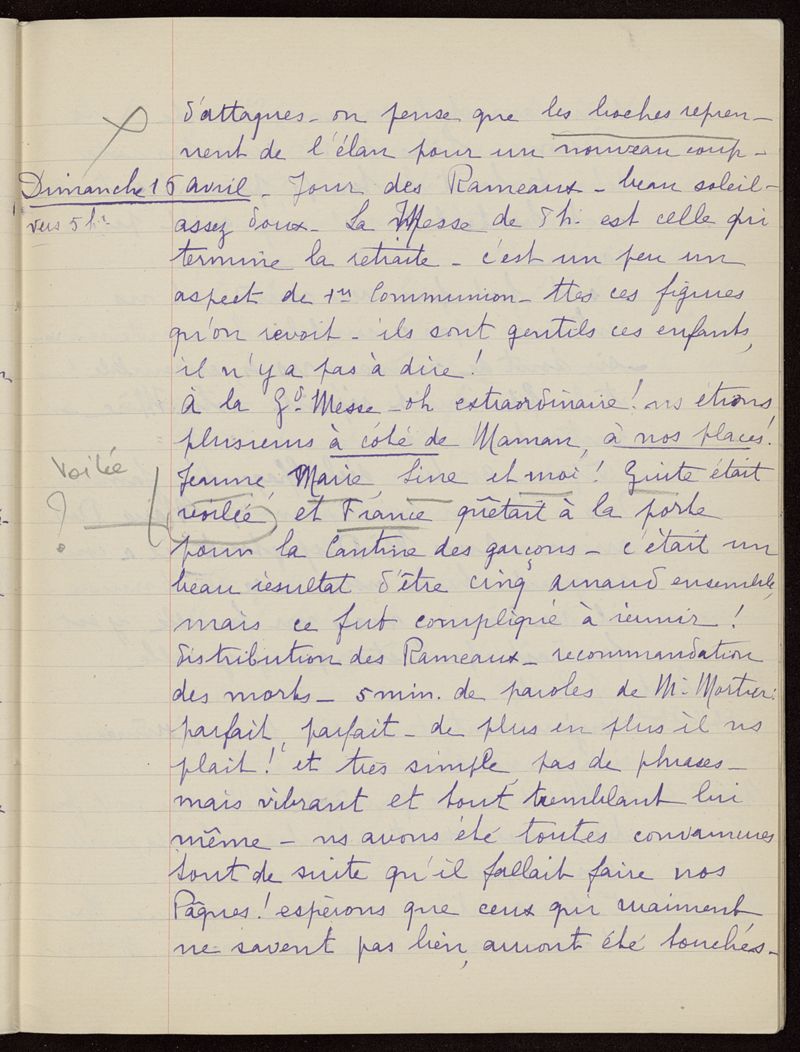 d'attaques - on pense que les boches repren-
nent de l'élan pour un nouveau coup -
Dimanche 16 avril - Jour des Rameaux - beau soleil -
vers 5 h. assez doux - La Messe de 8h. est celle qui
termine la retraite - c'est un peu un
aspect de 1re Communion - ttes ces figures
qu'on revoit - ils sont gentils ces enfants,
il n'y a pas à dire !
à la Gd Messe - oh extraordinaire ! ns étions
plusieurs à côté de Maman, à nos places !
voilée
Jeanne, Marie, Line et moi ! Guite était
? voilée, et France quêtait à la porte
pour la Cantine des garçons - c'était un
beau résultat d'être cinq Arnaud ensemble,
mais ce fut compliqué à réunir !
distribution des Rameaux - recommandation
des morts - 5 min. de paroles de Mr Mortier :
parfait, parfait - de plus en plus il ns
plait ! et très simple, pas de phrases -
mais vibrant et tout tremblant lui
même - ns avons été toutes convaincues
tout de suite qu'il fallait faire nos
Pâques ! espérons que ceux qui vraiment
ne savent pas bien, auront été touchés -